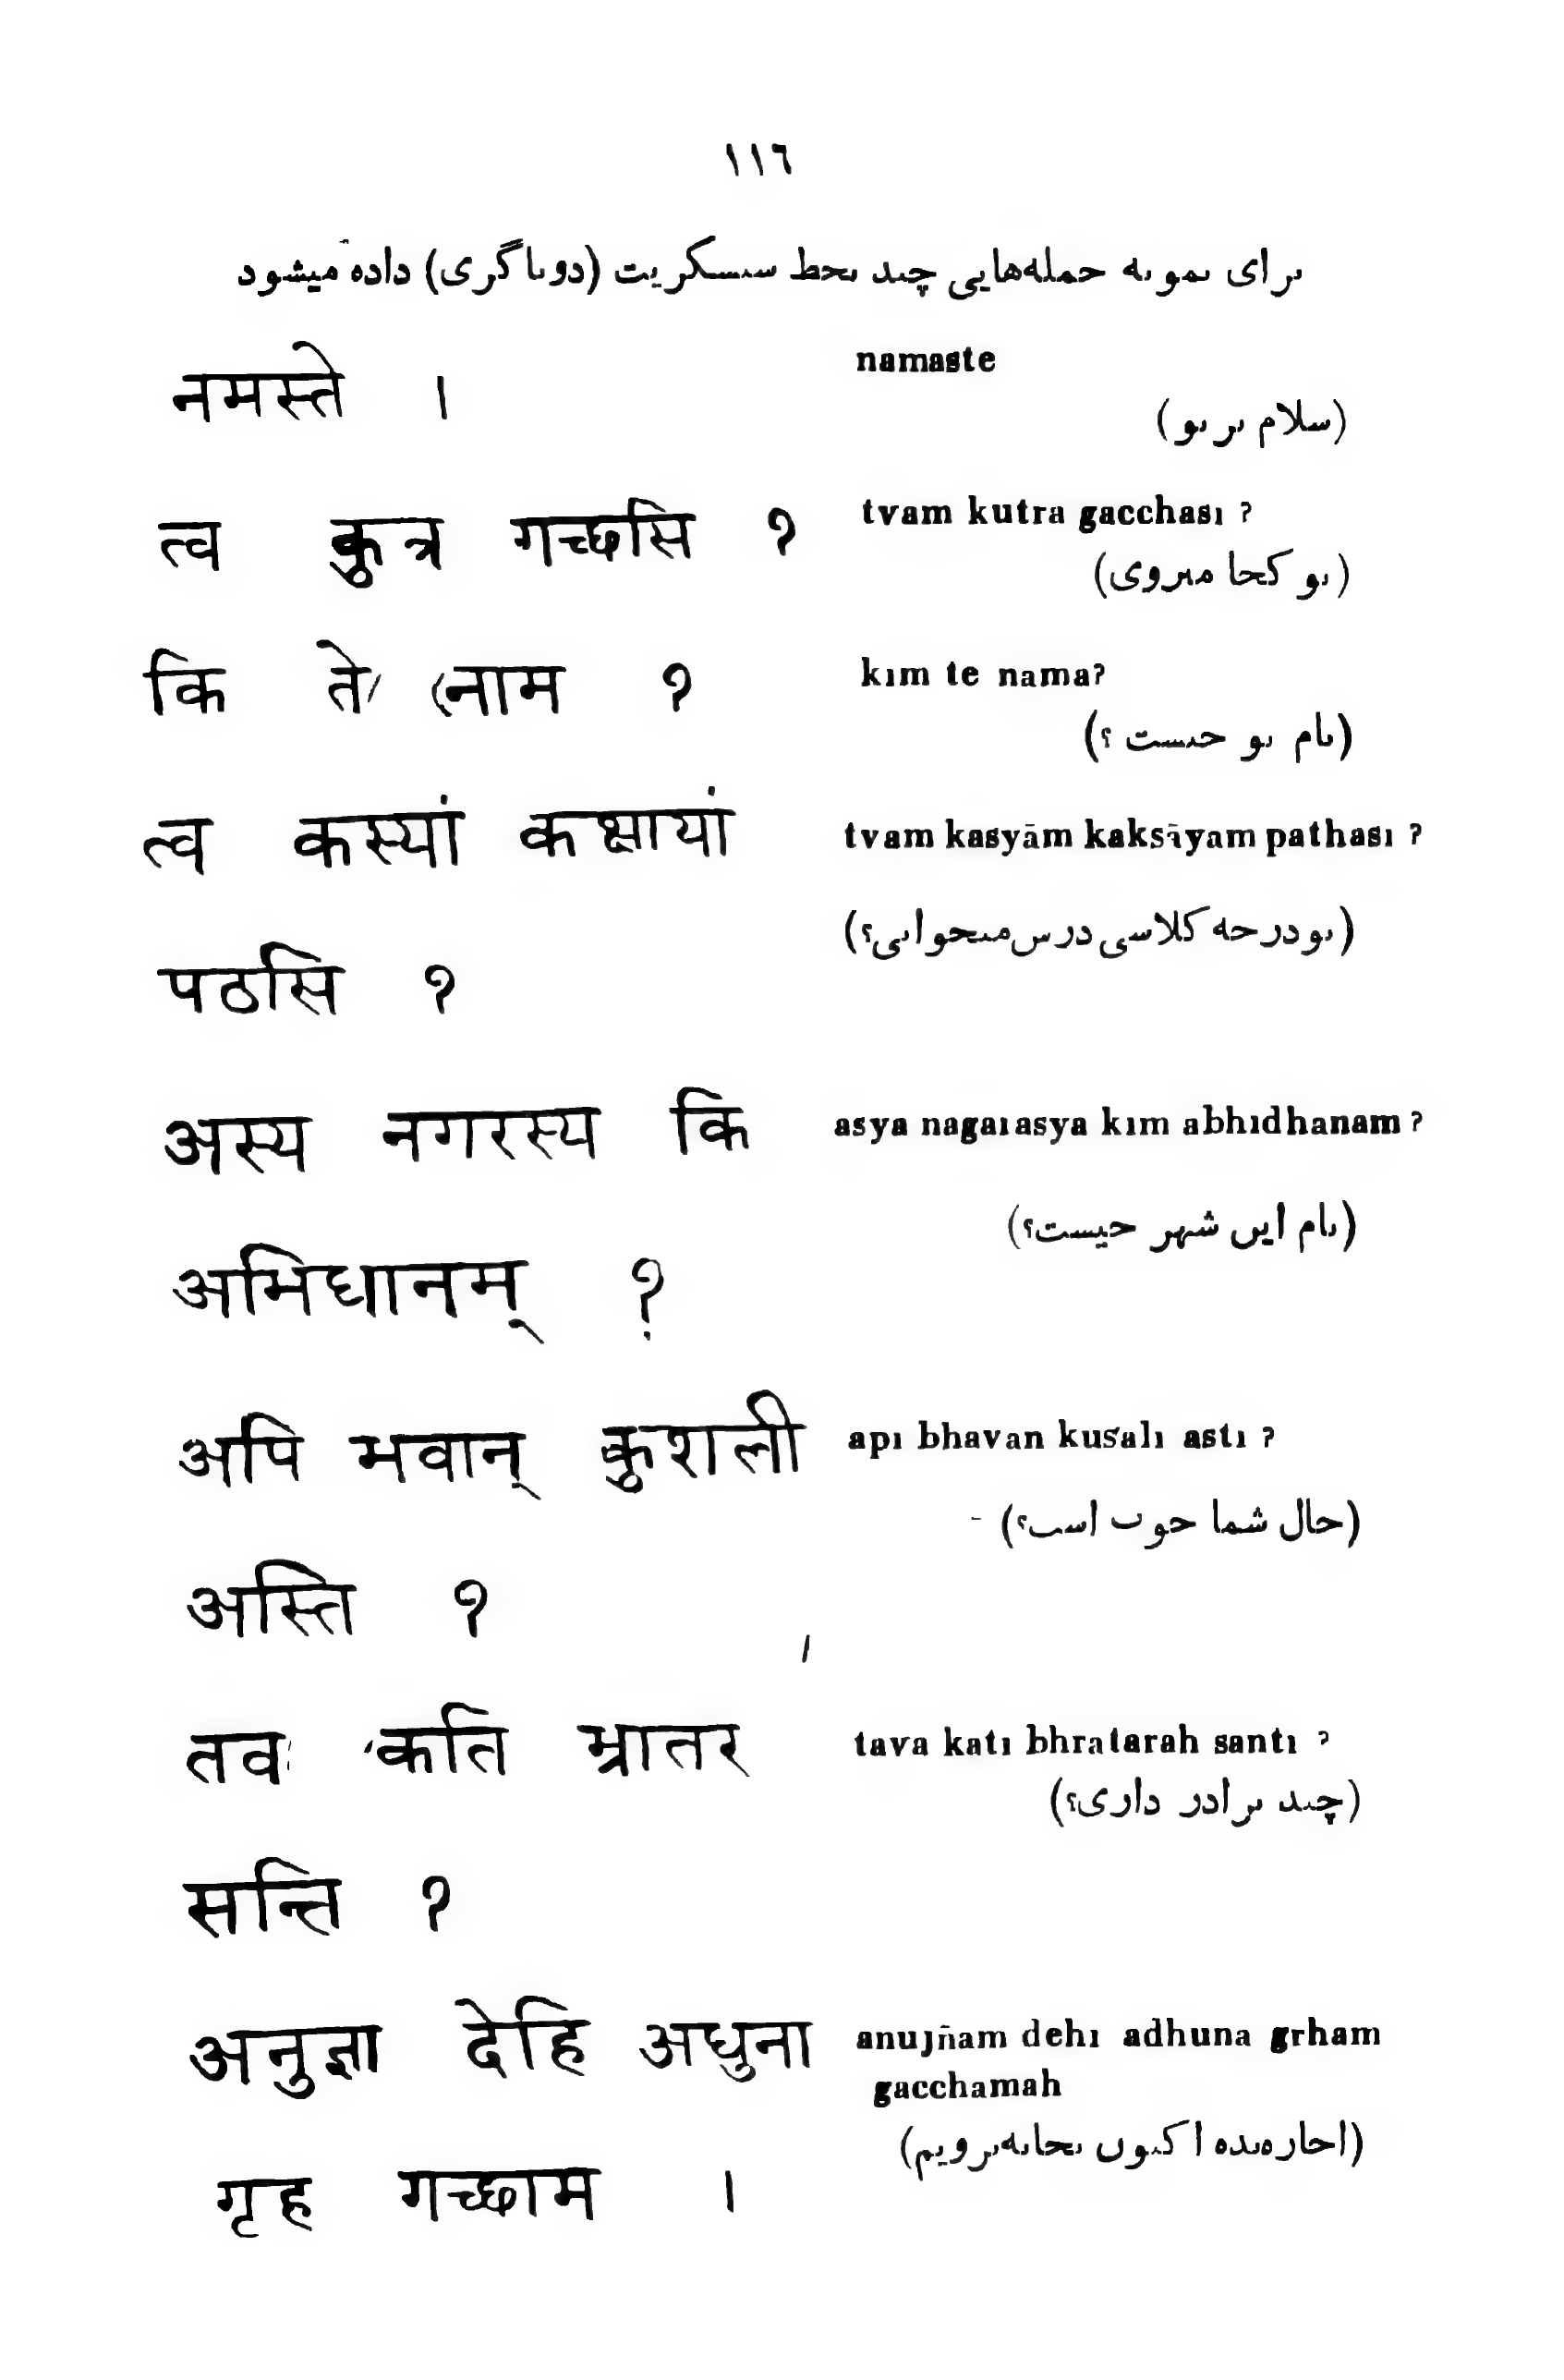 ١١٦
برای نمونه جمله‌هایی چند بخط سنسکریت (دوناگری) داده میشود
नमस्ते ।
namaste
(سلام بر تو)
त्व कुत्र गच्छसि ?
tvam kutra gacchası ?
(تو کجا میروی)
कि ते नाम ?
kım te nama?
(نام تو چیست ؟)
त्व कस्यां कक्षायां
tvam kasyām kaksāyam pathası ?
(تو درچه کلاسی درس میخوانی؟)
पठसि ?
अस्य नगरस्य कि
asya nagaıasya kım abhıdhanam ?
(نام این شهر چیست؟)
अभिधानम् ?
अपि भवान् कुशली
apı bhavan kuśalı astı ?
(حال شما خوب است؟)
अस्ति ?
तव कति भ्रातर
tava katı bhratarah santı ?
(چند برادر داری؟)
सन्ति ?
अनुज्ञा देहि अधुना
anujñam dehı adhuna grham
gacchamah
(اجازه‌بده اکنون بخانه‌برویم)
गृह गच्छाम ।